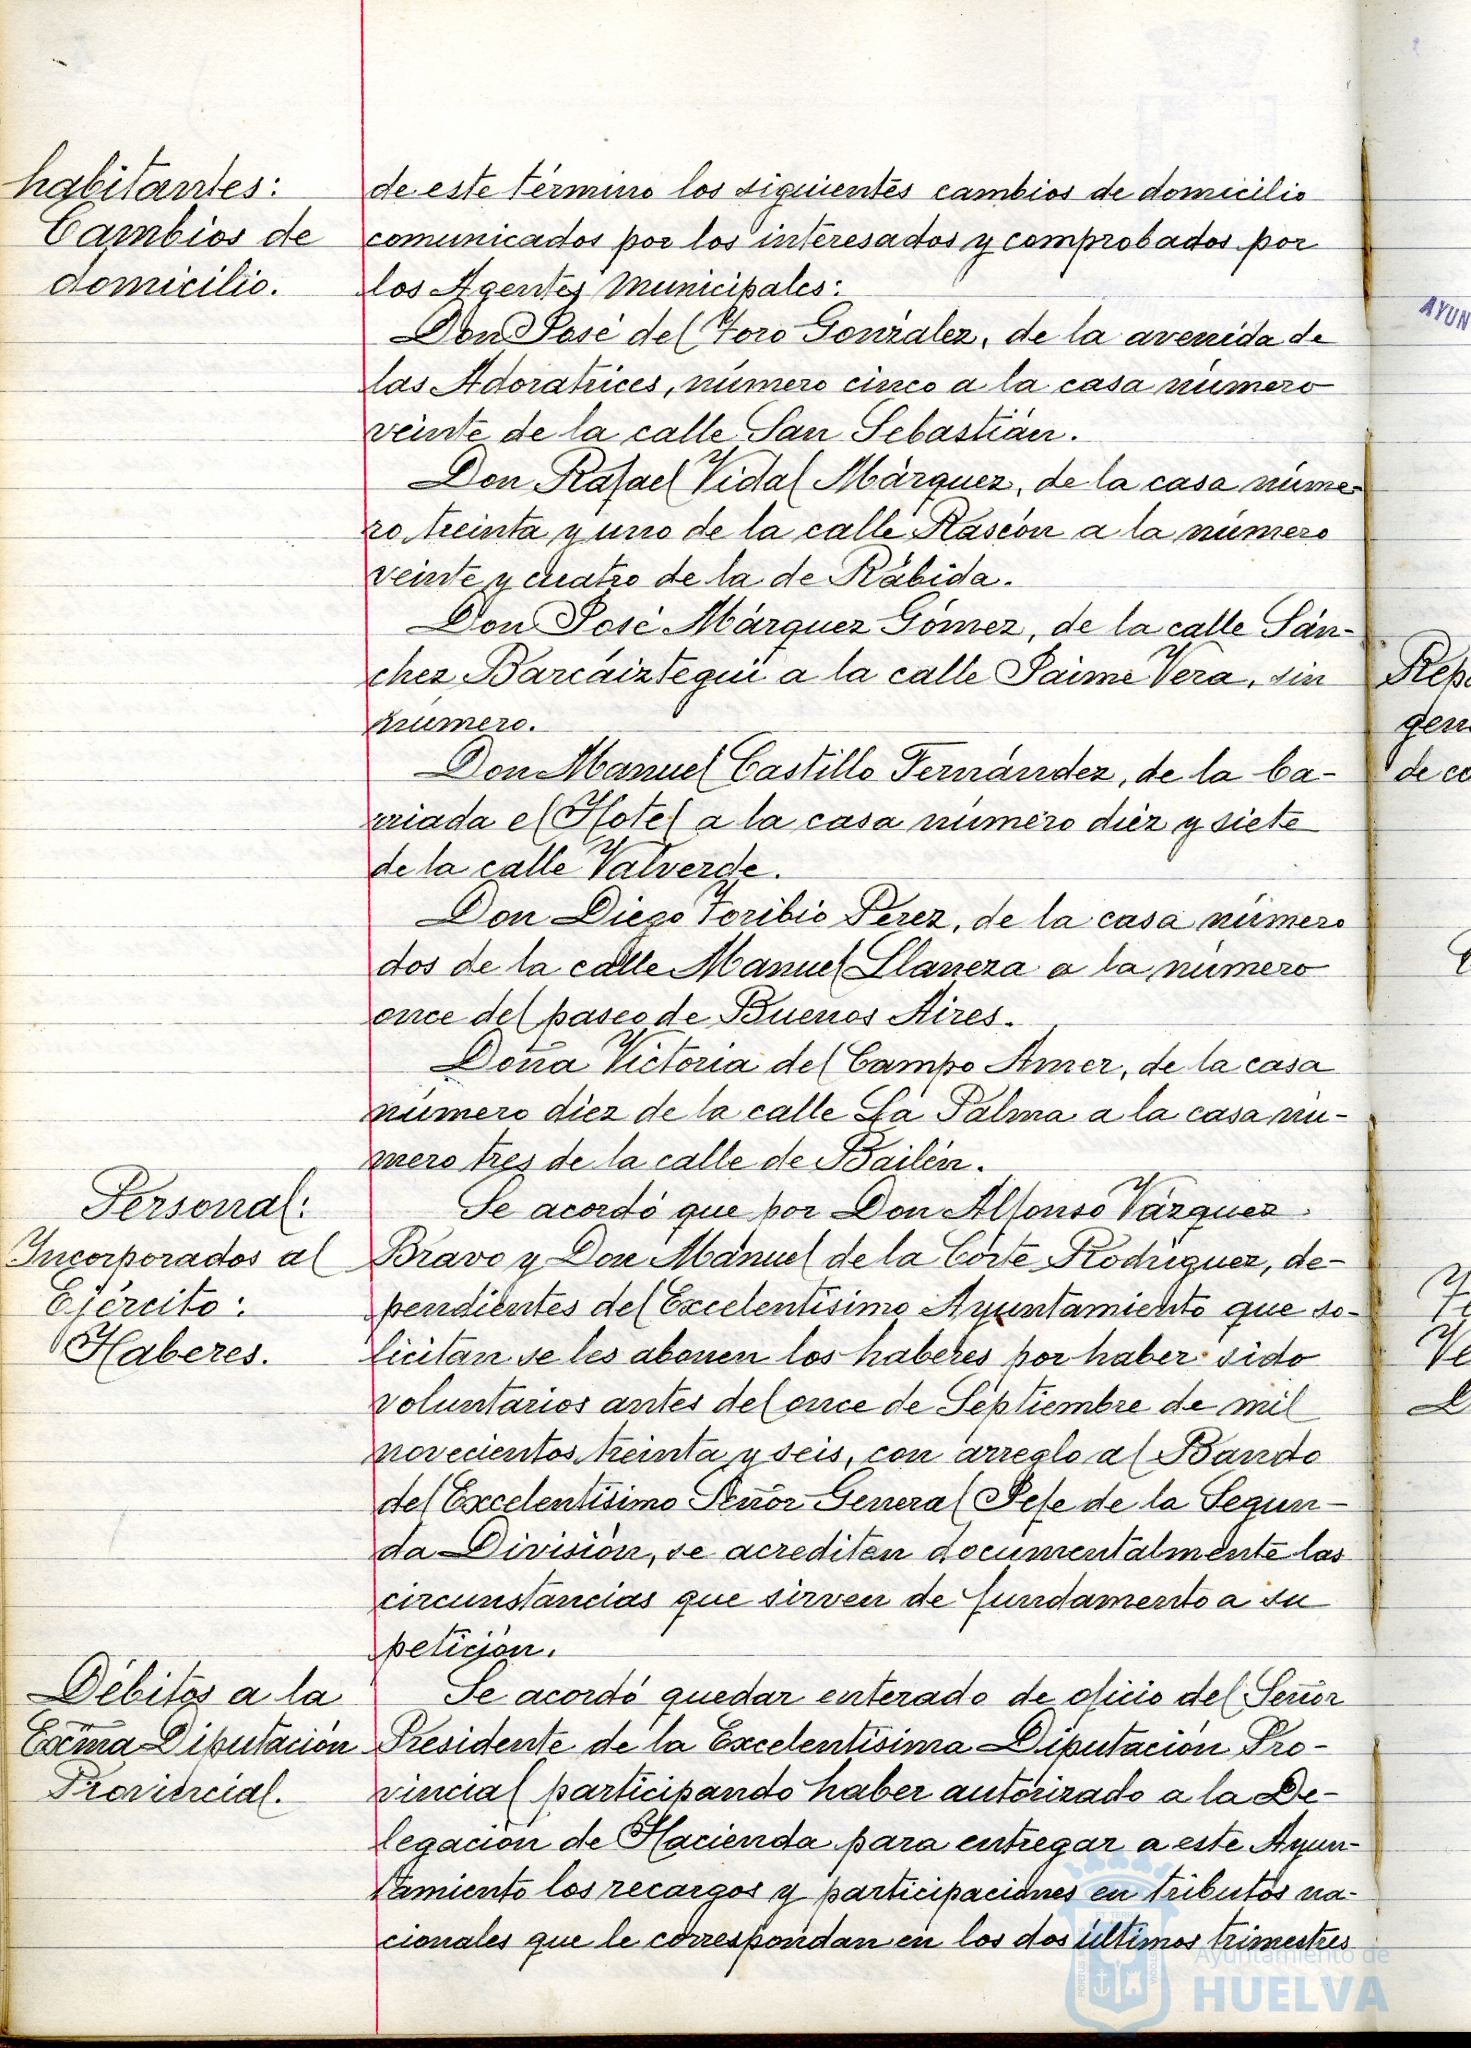 habitantes:
Cambios de
domicilio.
de este término los siguientes cambios de domicilio
comunicados por los interesados y comprobados por
los Agentes Municipales:
Don José del Toro González, de la avenida de
las Adoratrices, número cinco a la casa número
veinte de la calle San Sebastián.
Don Rafael Vidal Márquez, de la casa núme-
ro treinta y uno de la calle Rascón a la número
veinte y cuatro de la de Rábida.
Don José Márquez Gómez, de la calle Sán-
chez Barcáiztegui a la calle Jaime Vera, sin
número.
Don Manuel Castillo Fernández, de la ba-
rriada el Hotel a la casa número diez y siete
de la calle Valverde.
Don Diego Toribio Pérez, de la casa número
dos de la calle Manuel Llaneza a la número
once del paseo de Buenos Aires.
Doña Victoria del Campo Amer, de la casa
número diez de la calle La Palma a la casa nú-
mero tres de la calle de Bailén.
Personal:
Incorporados al
Ejército:
Haberes.
Se acordó que por Don Alfonso Vázquez
Bravo y Don Manuel de la Corte Rodríguez, de-
pendientes del Excelentísimo Ayuntamiento que so-
licitan se les abonen los haberes por haber sido
voluntarios antes del once de Septiembre de mil
novecientos treinta y seis, con arreglo al Bando
del Excelentísimo Señor General Jefe de la Segun-
da División, se acrediten documentalmente las
circunstancias que sirven de fundamento a su
petición.
Débitos a la
Excma Diputación
Provincial.
Se acordó quedar enterado de oficio del Señor
Presidente de la Excelentísima Diputación Pro-
vincial participando haber autorizado a la De-
legación de Hacienda para entregar a este Ayun-
tamiento los recargos y participaciones en tributos na-
cionales que le correspondan en los dos últimos trimestres
AYUN
Rep
gen
de co
Ve
Ayuntamiento de
HUELVA